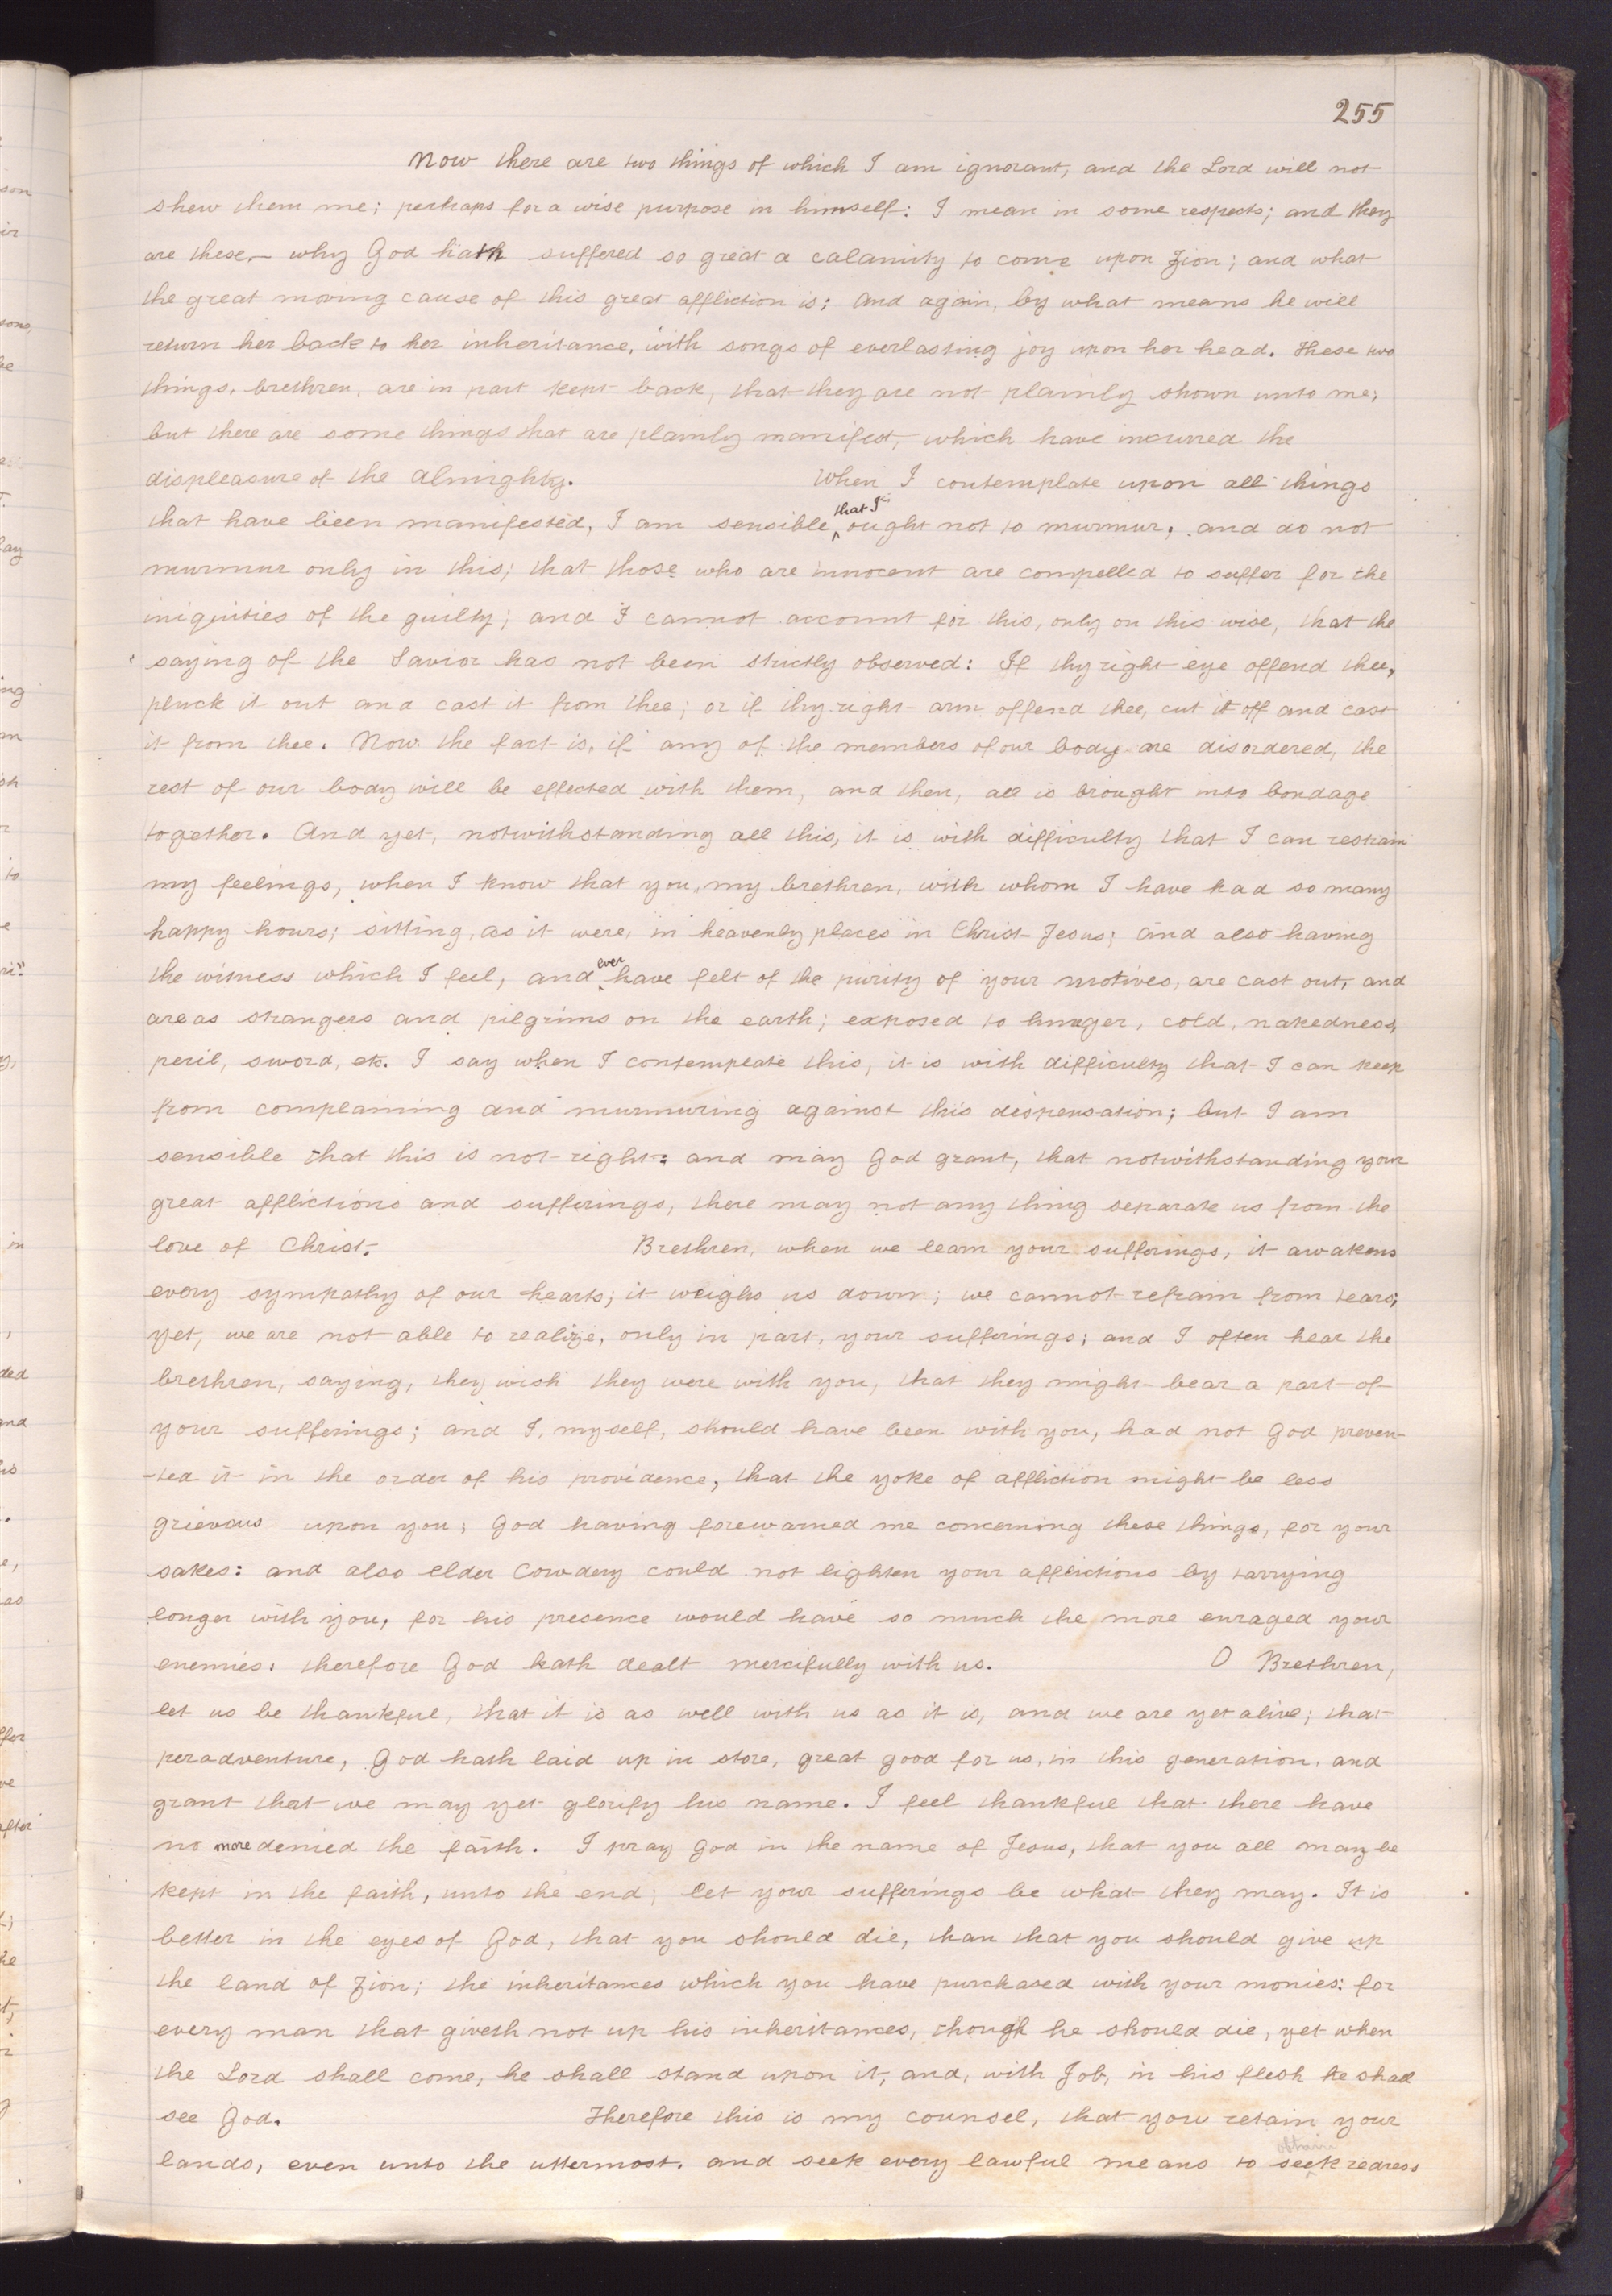 255
Now there are two things of which I am ignorant, and the Lord will not
shew them me; perhaps for a wise purpose in himself: I mean in some respects; and they
are these,— why God hath suffered so great a calamity to come upon Zion; and what
the great moving cause of this great affliction is; and again, by what means he will
return her back to her inheritance, with songs of everlasting joy upon her head. These two
things, brethren, are in part kept back, that they are not plainly shown unto me;
but there are some things that are plainly manifest, which have incurred the
displeasure of the almighty. When I contemplate upon all things
that have been manifested, I am sensible that I ought not to murmur, and do not
murmur only in this; that those who are innocent are compelled to suffer for the
iniquities of the guilty; and I cannot account for this, only on this wise, that the
saying of the Savior has not been strictly observed: If thy right eye offend thee,
pluck it out and cast it from thee; or if thy right arm offend thee, cut it off and cast
it from thee. Now the fact is, if any of the members of our body are disordered, the
rest of our body will be effected with them, and then, all is brought into bondage
together. And yet, notwithstanding all this, it is with difficulty that I can restrain
my feelings, when I know that you, my brethren, with whom I have had so many
happy hours; sitting, as it were, in heavenly places in Christ Jesus; and also having
the witness which I feel, and ever have felt of the purity of your motives, are cast out, and
are as strangers and pilgrims on the earth; exposed to hunger, cold, nakedness,
peril, sword, etc. I say when I contemplate this, it is with difficulty that I can keep
from complaining and murmuring against this dispensation; but I am
sensible that this is not right: and may God grant, that notwithstanding your
great afflictions and sufferings, there may not any thing separate us from the
love of Christ. Brethren, when we learn your sufferings, it awakens
every sympathy of our hearts; it weighs us down; we cannot refrain from tears;
yet, we are not able to realize, only in part, your sufferings; and I often hear the
brethren, saying, they wish they were with you, that they might bear a part of
your sufferings; and I, myself, should have been with you, had not God preven-
-ted it in the order of his providence, that the yoke of affliction might be less
grievous upon you; God having forewarned me concerning these things, for your
sakes: and also elder Cowdery could not lighten your afflictions by tarrying
longer with you, for his presence would have so much the more enraged your
enemies: therefore God hath dealt mercifully with us. O Brethren,
let us be thankful, that it is as well with us as it is, and we are yet alive; that
peradventure, God hath laid up in store, great good for us, in this generation, and
grant that we may yet glorify his name. I feel thankful that there have
no more denied the faith. I pray God in the name of Jesus, that you all may be
kept in the faith, unto the end; let your sufferings be what they may. It is
better in the eyes of God, that you should die, than that you should give up
the land of Zion; the inheritances which you have purchased with your monies: for
every man that giveth not up his inheritances, though he should die, yet when
the Lord shall come, he shall stand upon it, and, with Job, in his flesh he shall
see God. Therefore this is my counsel, that you retain your
lands, even unto the uttermost, and seek every lawful means to seek obtain redress